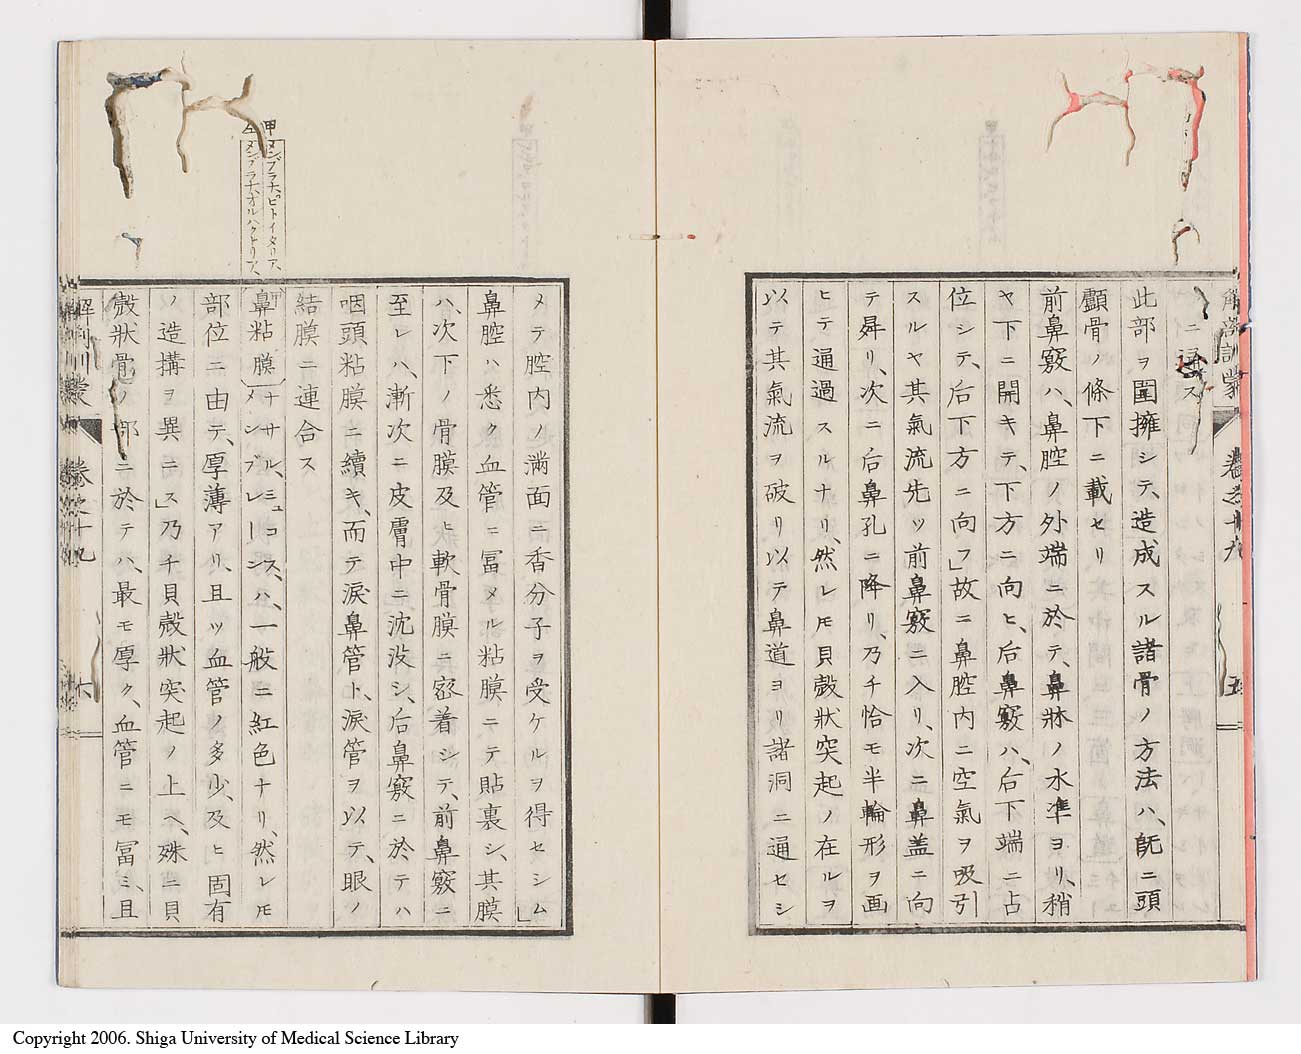 解議訓蒙 卷之十九 五
ヤニ通ス
此部ヲ圍擁シテ、造成スル諸骨ノ方法ハ、旣ニ頭
顱骨ノ條下ニ載セリ
前鼻竅ハ、鼻腔ノ外端ニ於テ、鼻牀ノ水準ヨリ、稍
ヤ下ニ開キテ、下方ニ向ヒ、后鼻竅ハ、后下端ニ占
位シテ、后下方ニ向フ」故ニ鼻腔内ニ空氣ヲ吸引
スルヤ其氣流先ツ前鼻竅ニ入リ、次ニ鼻盖ニ向
テ昇リ、次ニ后鼻孔ニ降リ、乃チ恰モ半輪形ヲ画
ヒテ通過スルナリ、然レ𪜈貝殼狀突起ノ在ルヲ
以テ其氣流ヲ破リ以テ鼻道ヨリ諸洞ニ通セシ
メテ腔内ノ満面ニ香分子ヲ受ケルヲ得セシム」
鼻腔ハ悉ク血管ニ冨メル粘膜ニテ貼裏シ、其膜
ハ、次下ノ骨膜及ヒ軟骨膜ニ密着シテ、前鼻竅ニ
至レハ、漸次ニ皮膚中ニ沈没シ、后鼻竅ニ於テハ
咽頭粘膜ニ續キ、而テ淚鼻管ト、淚管ヲ以テ、眼ノ
結膜ニ連合ス
甲メンブラナ、ピトイタリア、
メンブラナ、オルハクトリア、
鼻粘膜(メンブレーシ、ナサル、ミュコス、ハ、一般ニ紅色ナリ、然レ𪜈
部位ニ由テ、厚薄アリ、且ツ血管ノ多少、及ヒ固有
ノ造搆ヲ異ニス」乃チ貝殼狀突起ノ上ヘ、殊ニ貝
殼狀骨ノ部ニ於テハ、最モ厚ク、血管ニモ冨ミ、且
卷之十九 六
Copyright 2006. Shiga University of Medical Science Library